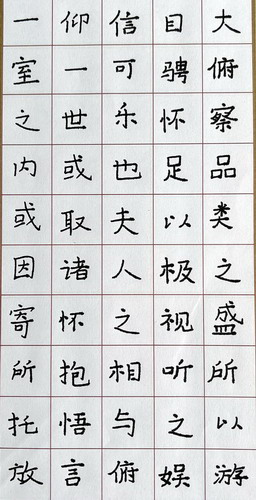 大俯察品类之盛所以游
目骋怀足以极视听之娱
信可乐也夫人之相与俯
仰一世或取诸怀抱悟言
一室之内或因寄所托放